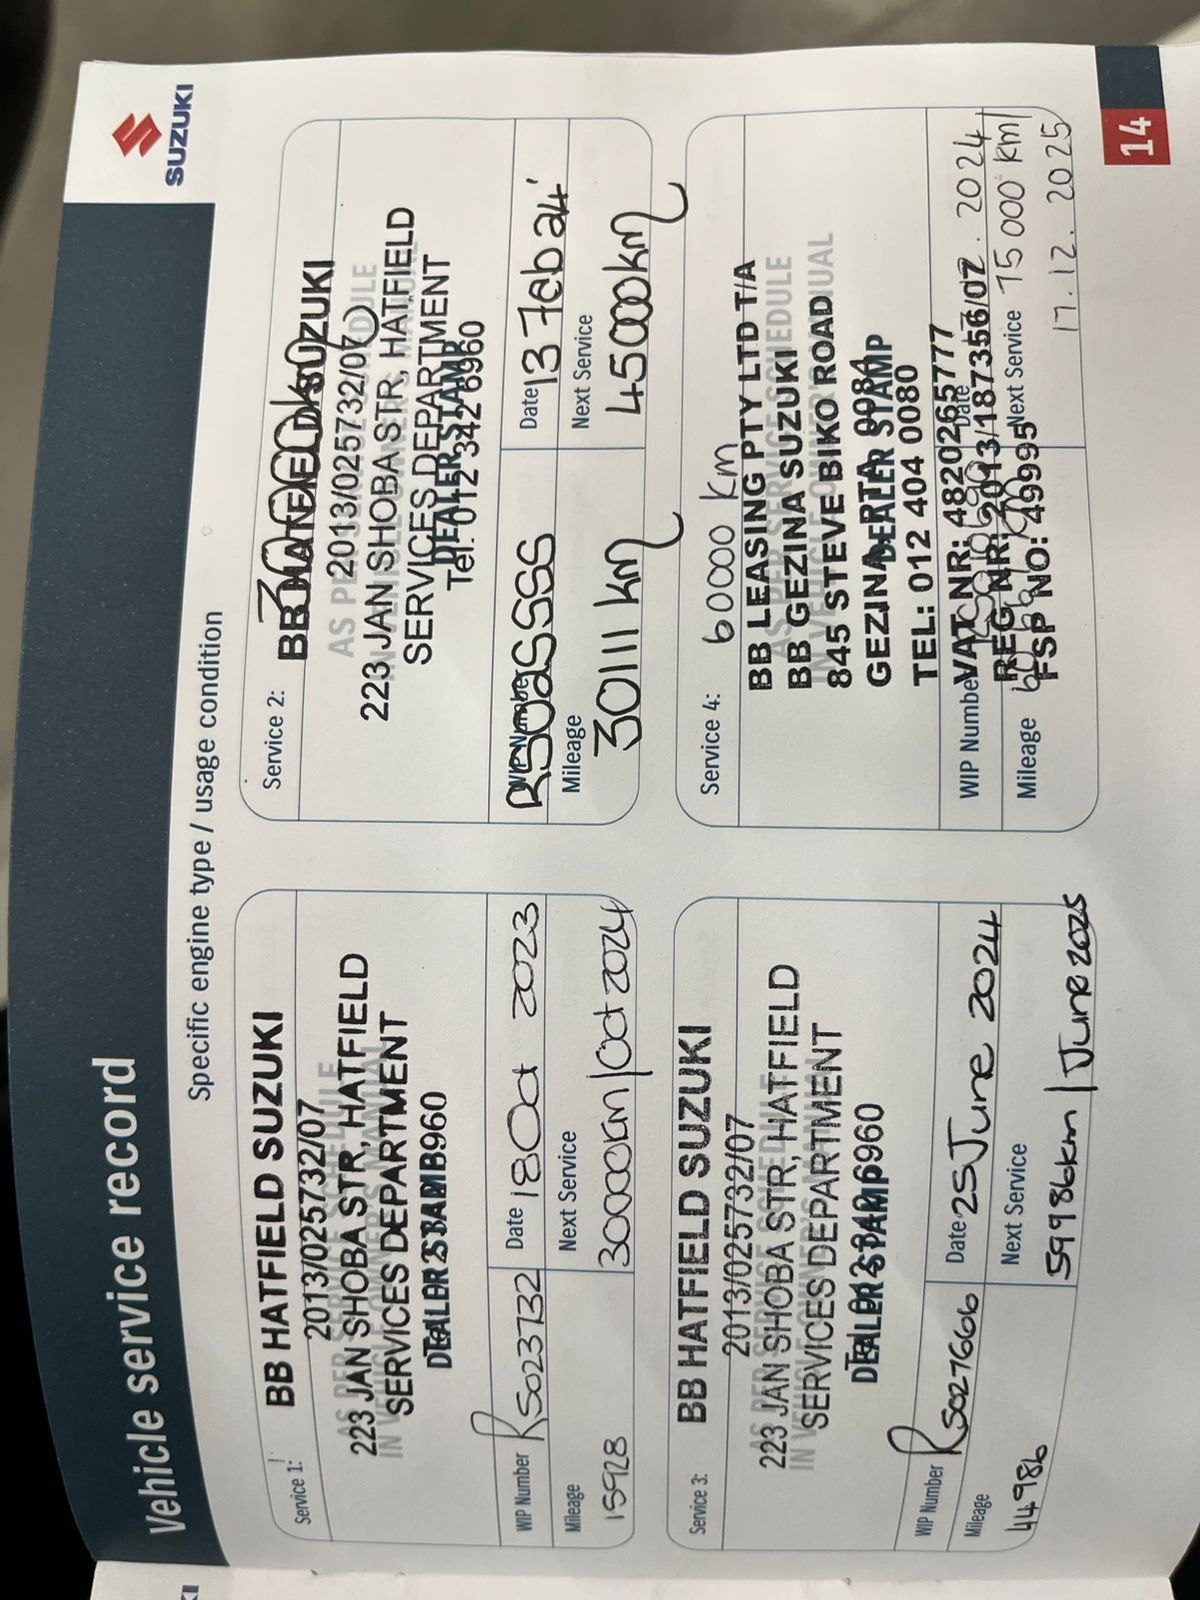 Vehicle service record
SUZUKI
Specific engine type / usage condition
Service 1:
BB HATFIELD SUZUKI
2013/025732/07
223 JAN SHOBA STR, HATFIELD
SERVICES DEPARTMENT
DEALER STAMP
WIP Number RS023732
Date 18 Oct 2023
Mileage
15928
Next Service
30000km/Oct 2024
Service 2:
BB HATFIELD SUZUKI
AS PER SERVICE SCHEDULE
2013/025732/07
223 JAN SHOBA STR, HATFIELD
SERVICES DEPARTMENT
DEALER STAMP
Tel: 012 342 6960
WIP Number
Date 13 Feb 24
Mileage
30111 km
Next Service
45000km
Service 3:
BB HATFIELD SUZUKI
2013/025732/07
223 JAN SHOBA STR, HATFIELD
SERVICES DEPARTMENT
DEALER STAMP
WIP Number RS027666
Date 25 June 2024
Mileage
44986
Next Service
59986km/June 2025
Service 4: 60000 km
BB LEASING PTY LTD T/A
AS PER SERVICE SCHEDULE
BB GEZINA SUZUKI
IN VEHICLE OWNER'S MANUAL
845 STEVE BIKO ROAD
GEZINA 0084
DEALER STAMP
TEL: 012 404 0080
VAT NR: 4820265777
WIP Number
Date
2024
REG NR: 2013/187356/07
FSP NO: 49995
Mileage
Next Service 75 000 km/
17.12.2025
14